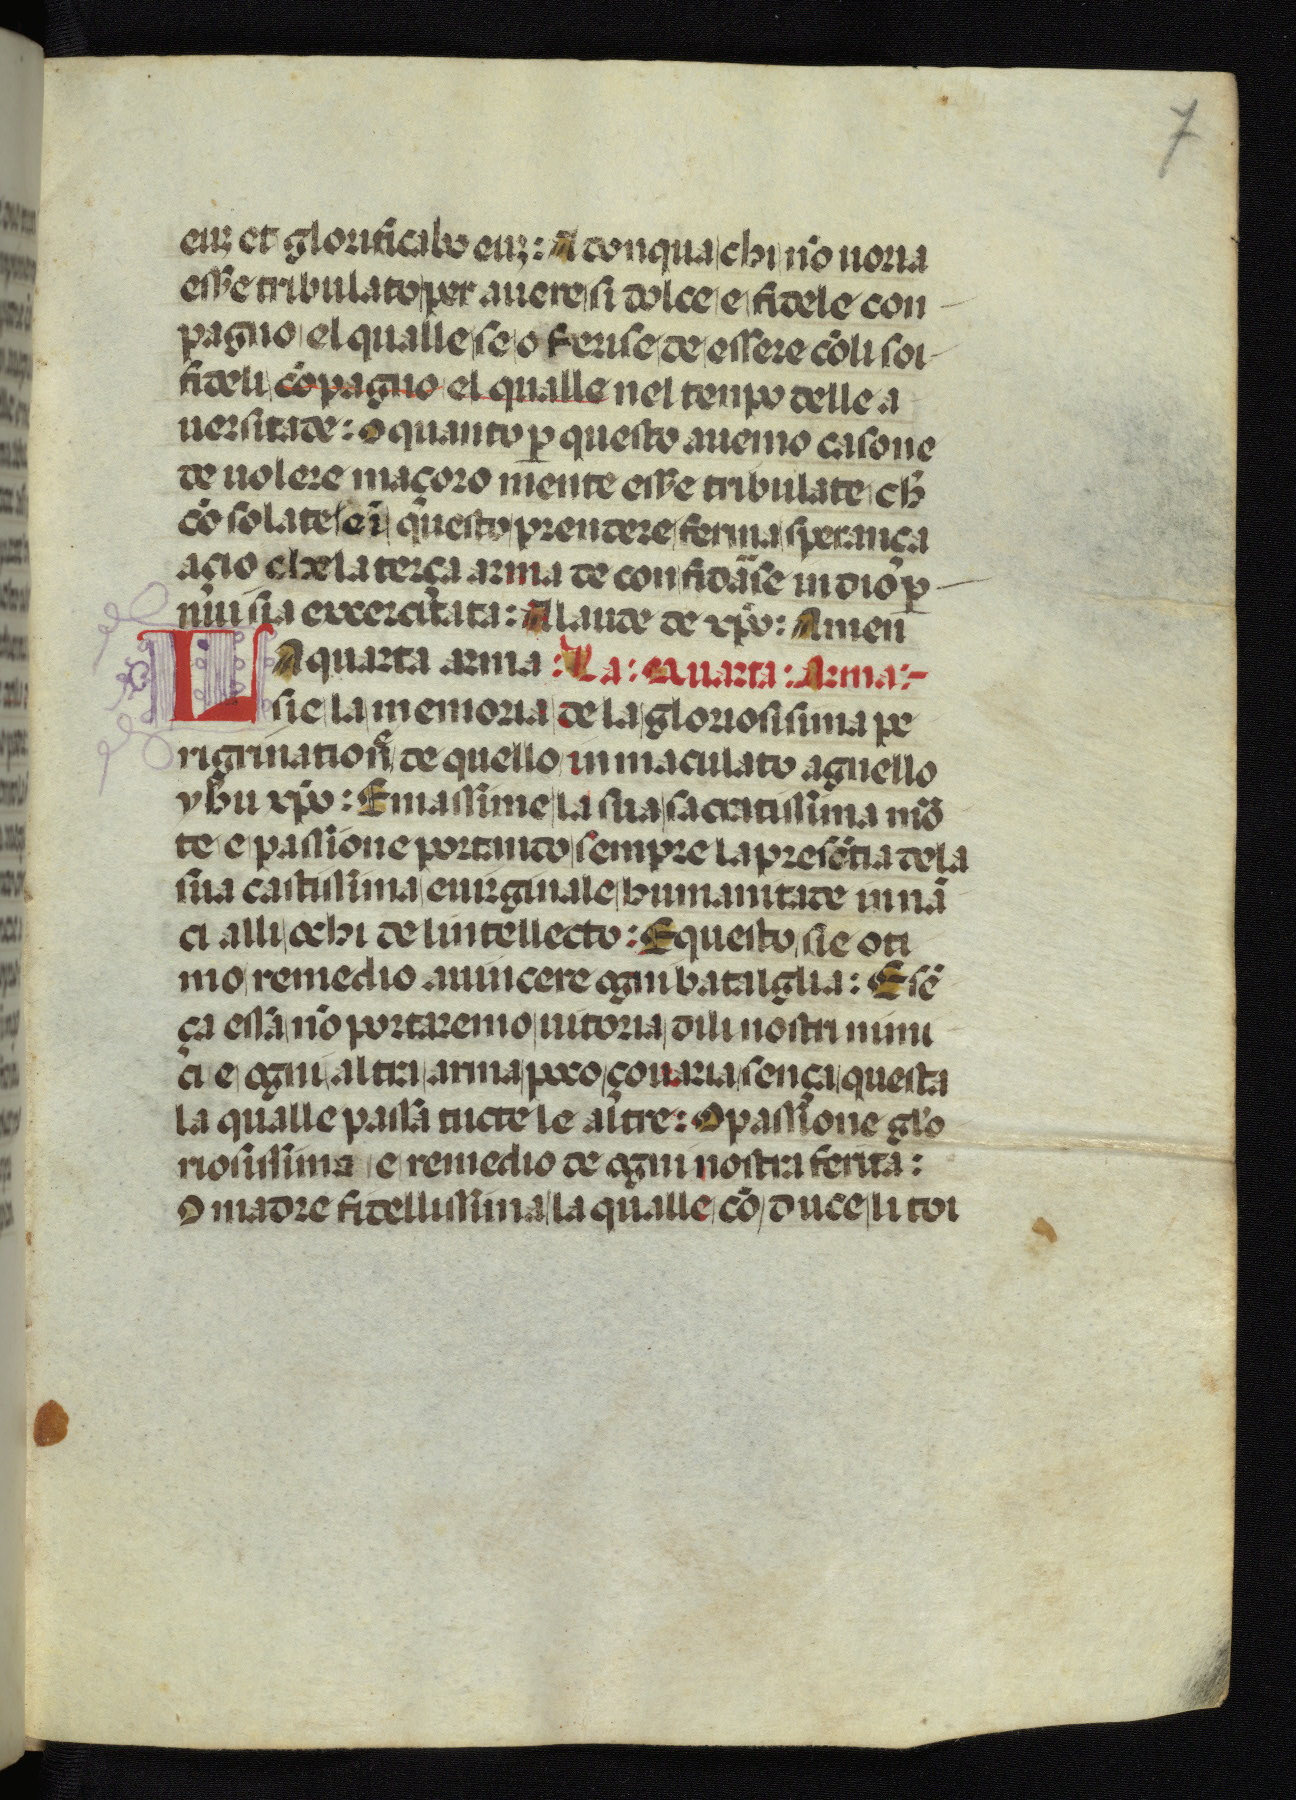 7
euꝫ et glorificabo euꝫ: A donqua chi nō uoria
esse tribulato per auere si dolce e fidele con
pagno el qualle se o ferise de essere cōli soi
fideli cōpagno el qualle nel tenpo delle a
uersitade: O quanto ꝑ questo auemo casone
de uolere maçoro mente esse tribulate ch̄
cō solate e ī questo prendere ferma sperança
açio che la terça arma de con fidāse in dio ꝑ
nui sia exercitata: A laude de xp̄o: Amen
LA quarta arma : La: Quarta: Arma:-
sie la memoria de la gloriosisima pe
rigrination̄ de quello inmaculato agnello
yh̄u xp̄o: E massime la sua sacratissima mō
te e passione portando sempre la presētia dela
sua castissima e uirginale humanitade in nā
ci alli ochi de lintellecto: E questo sie oti
mo remedio a uincere ogni bataglia: E sē
ça essa nō portaremo uitoria dili nostri nimi
ci e ogni altri arma poco çouaria sença questa
la qualle passa tucte le altre: O passione glo
riosissima e remedio de ogni nostra ferita:
O madre fidellissima la qualle cō duce li toi